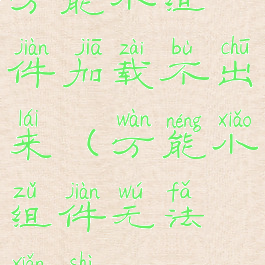 万能小组
jiàn jiā zài bù chū
件加载不出
lái wàn néng xiǎo
来（万能小
zǔ jiàn wú fǎ
组件无法
xiǎn shì